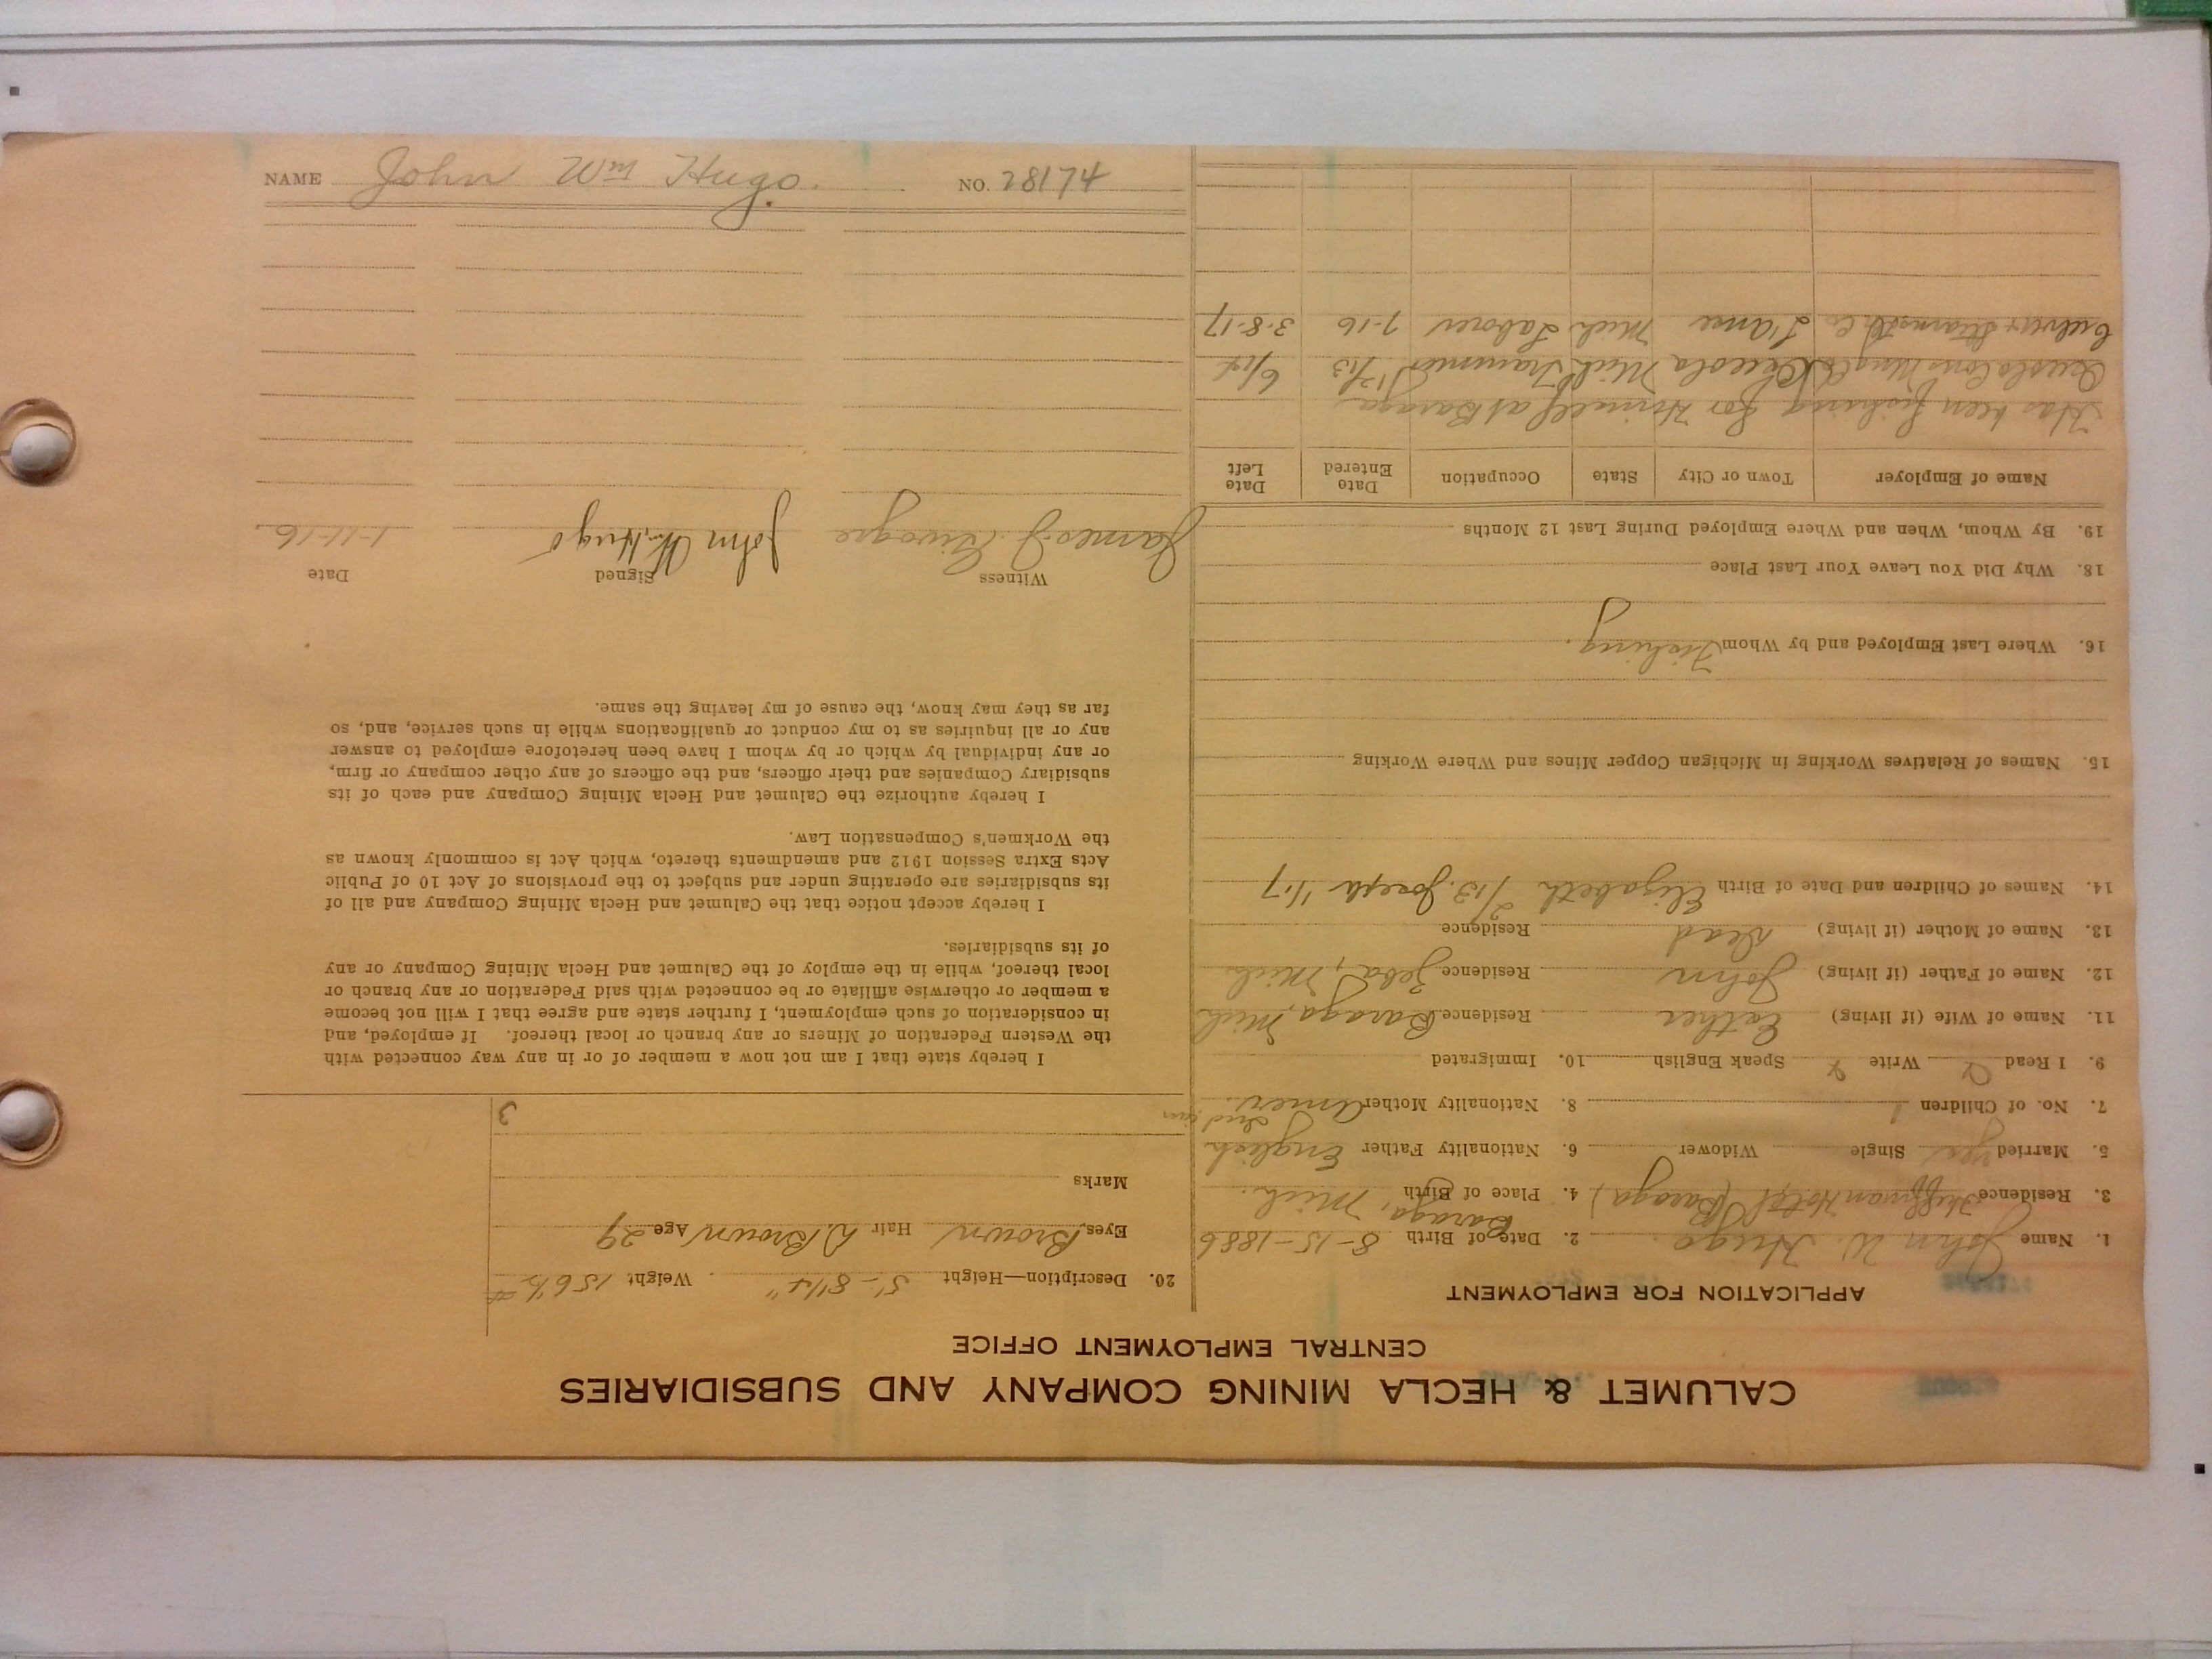 CALUMET & HECLA MINING COMPANY AND SUBSIDIARIES
CENTRAL EMPLOYMENT OFFICE
APPLICATION FOR EMPLOYMENT
1. Name John W. Hugo. 2. Date of Birth 8-15-1886
3. Residence Huffman Hotel (Baraga) 4. Place of Birth Baraga, Mich.
5. Married yes Single Widower 6. Nationality Father English
7. No. of Children 1 8. Nationality Mother Amer. Indian
9. I Read Write Speak English 10. Immigrated
11. Name of Wife (if living) Esther Residence Baraga, Mich
12. Name of Father (if living) John Residence Zeba, Mich
13. Name of Mother (if living) Dead Residence
14. Names of Children and Date of Birth Elizabeth 2/13. Joseph 1/17
15. Names of Relatives Working in Michigan Copper Mines and Where Working
16. Where Last Employed and by Whom Fishing.
18. Why Did You Leave Your Last Place
19. By Whom, When and Where Employed During Last 12 Months
Name of Employer Town or City State Occupation Date Entered Date Left
Has been fishing for Himself at Baraga
Osceola Cons Mng Co Osceola Mich Trammer 12/13 6/14
L'anse Mich Laborer 7-16 3-8-17
20. Description—Height 5'-8 1/4" Weight 156 1/2 #
Eyes Brown Hair D. Brown Age 29
Marks
3
I hereby state that I am not now a member of or in any way connected with
the Western Federation of Miners or any branch or local thereof. If employed, and
in consideration of such employment, I further state and agree that I will not become
a member or otherwise affiliate or be connected with said Federation or any branch or
local thereof, while in the employ of the Calumet and Hecla Mining Company or any
of its subsidiaries.
I hereby accept notice that the Calumet and Hecla Mining Company and all of
its subsidiaries are operating under and subject to the provisions of Act 10 of Public
Acts Extra Session 1912 and amendments thereto, which Act is commonly known as
the Workmen's Compensation Law.
I hereby authorize the Calumet and Hecla Mining Company and each of its
subsidiary Companies and their officers, and the officers of any other company or firm,
or any individual by which or by whom I have been heretofore employed to answer
any or all inquiries as to my conduct or qualifications while in such service, and, so
far as they may know, the cause of my leaving the same.
Witness Signed Date
James J. John W. Hugo 1-11-16.
NAME John Wm Hugo. NO. 28174